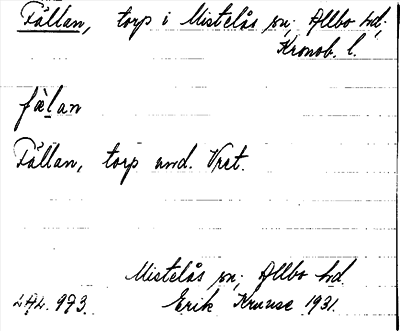 Fällan, torp i Mistelås sn; Allbo hd;
Kronob. l.
fälan
Fällan, torp und. Vret.
Mistelås sn; Allbo hd
LAL. 973. Erik Kruuse 1931.